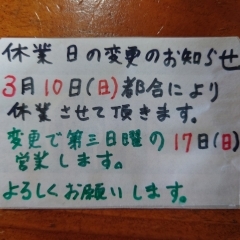 休業日の変更のお知らせ
3月10日(日)都合により
休業させて頂きます。
変更で第三日曜の17日(日)
営業します。
よろしくお願いします。